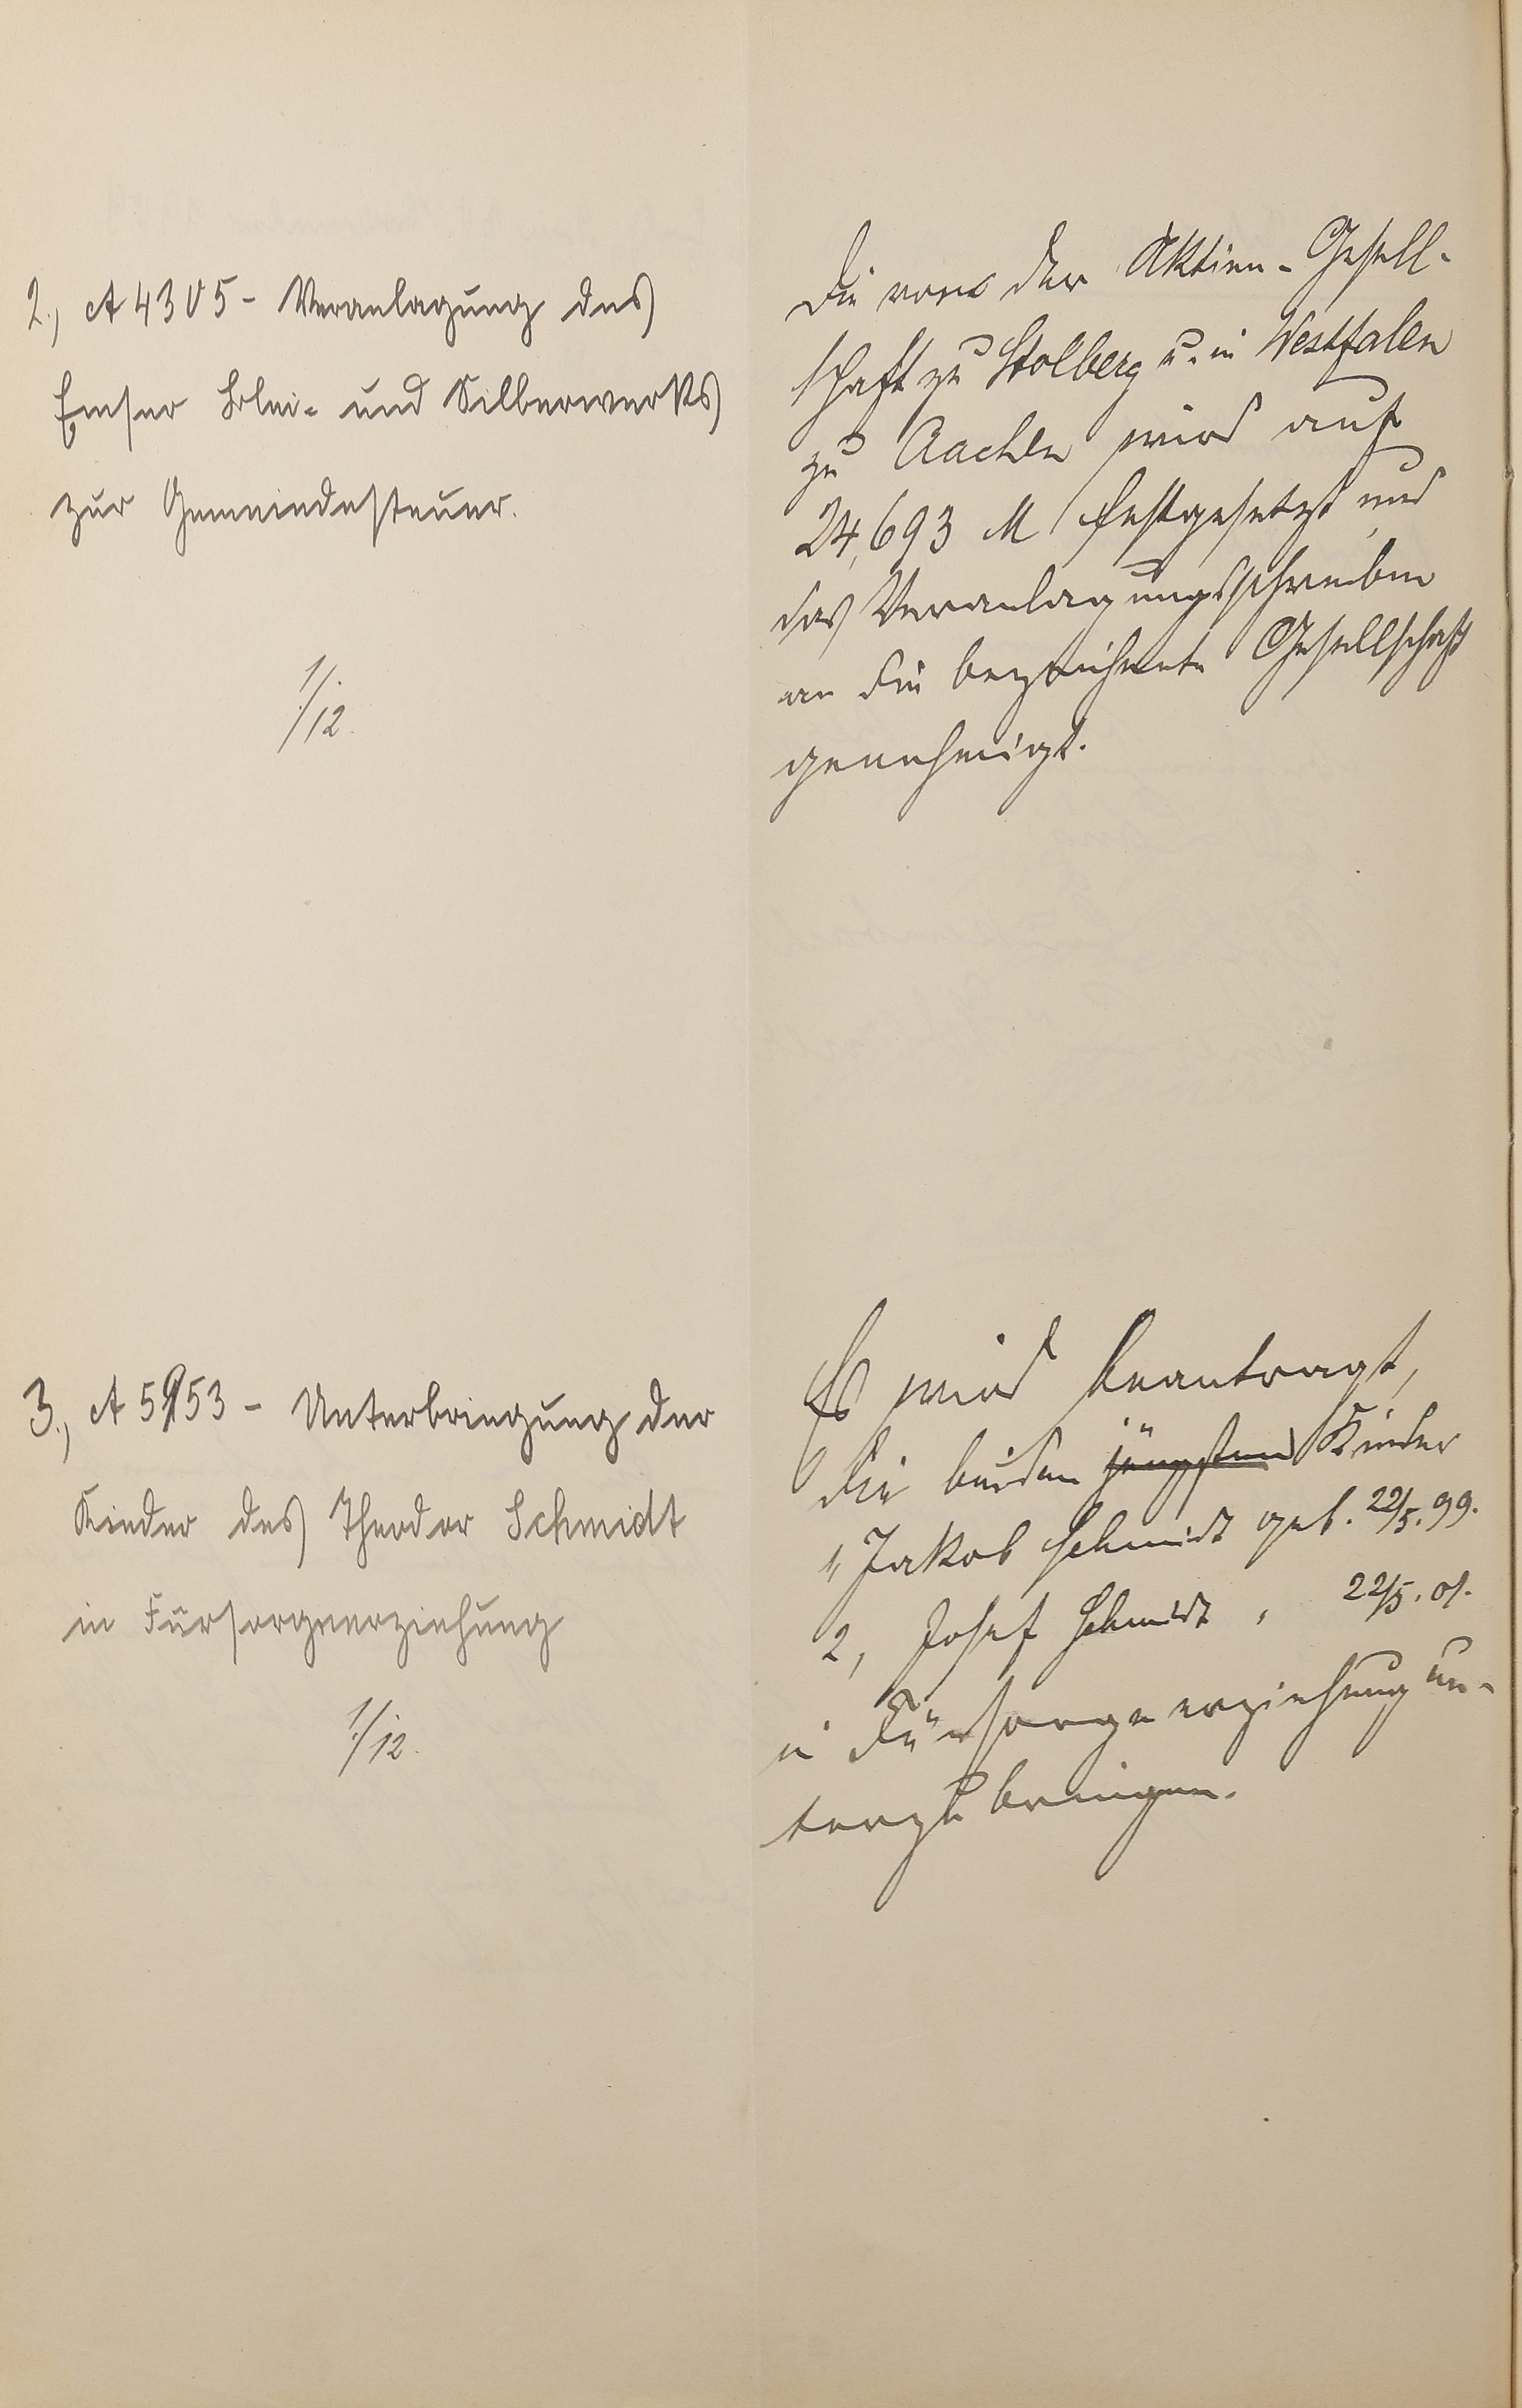 2., A 4305 - Veranlagung des
Emser Blei- und Silberwerks
zur Gemeindesteuer.
1/.
/12.
Die von der Aktien-Gesell-
schaft zu Stolberg u. in Westfalen
zu Aachen wird auf
24,693 M festgesetzt und
das Veranlagungsschreiben
an die bezeichnete Gesellschaft
genehmigt.
3., A 5953 - Unterbringung der
Kinder des Theodor Schmidt
in Fürsorgeerziehung
1/.
/12.
Es wird beantragt,
die beiden jüngsten Kinder
1, Jakob Schmidt geb. 22/5. 99.
2, Josef Schmidt " 22/5. 01.
in Fürsorgeerziehung un-
terzubringen.